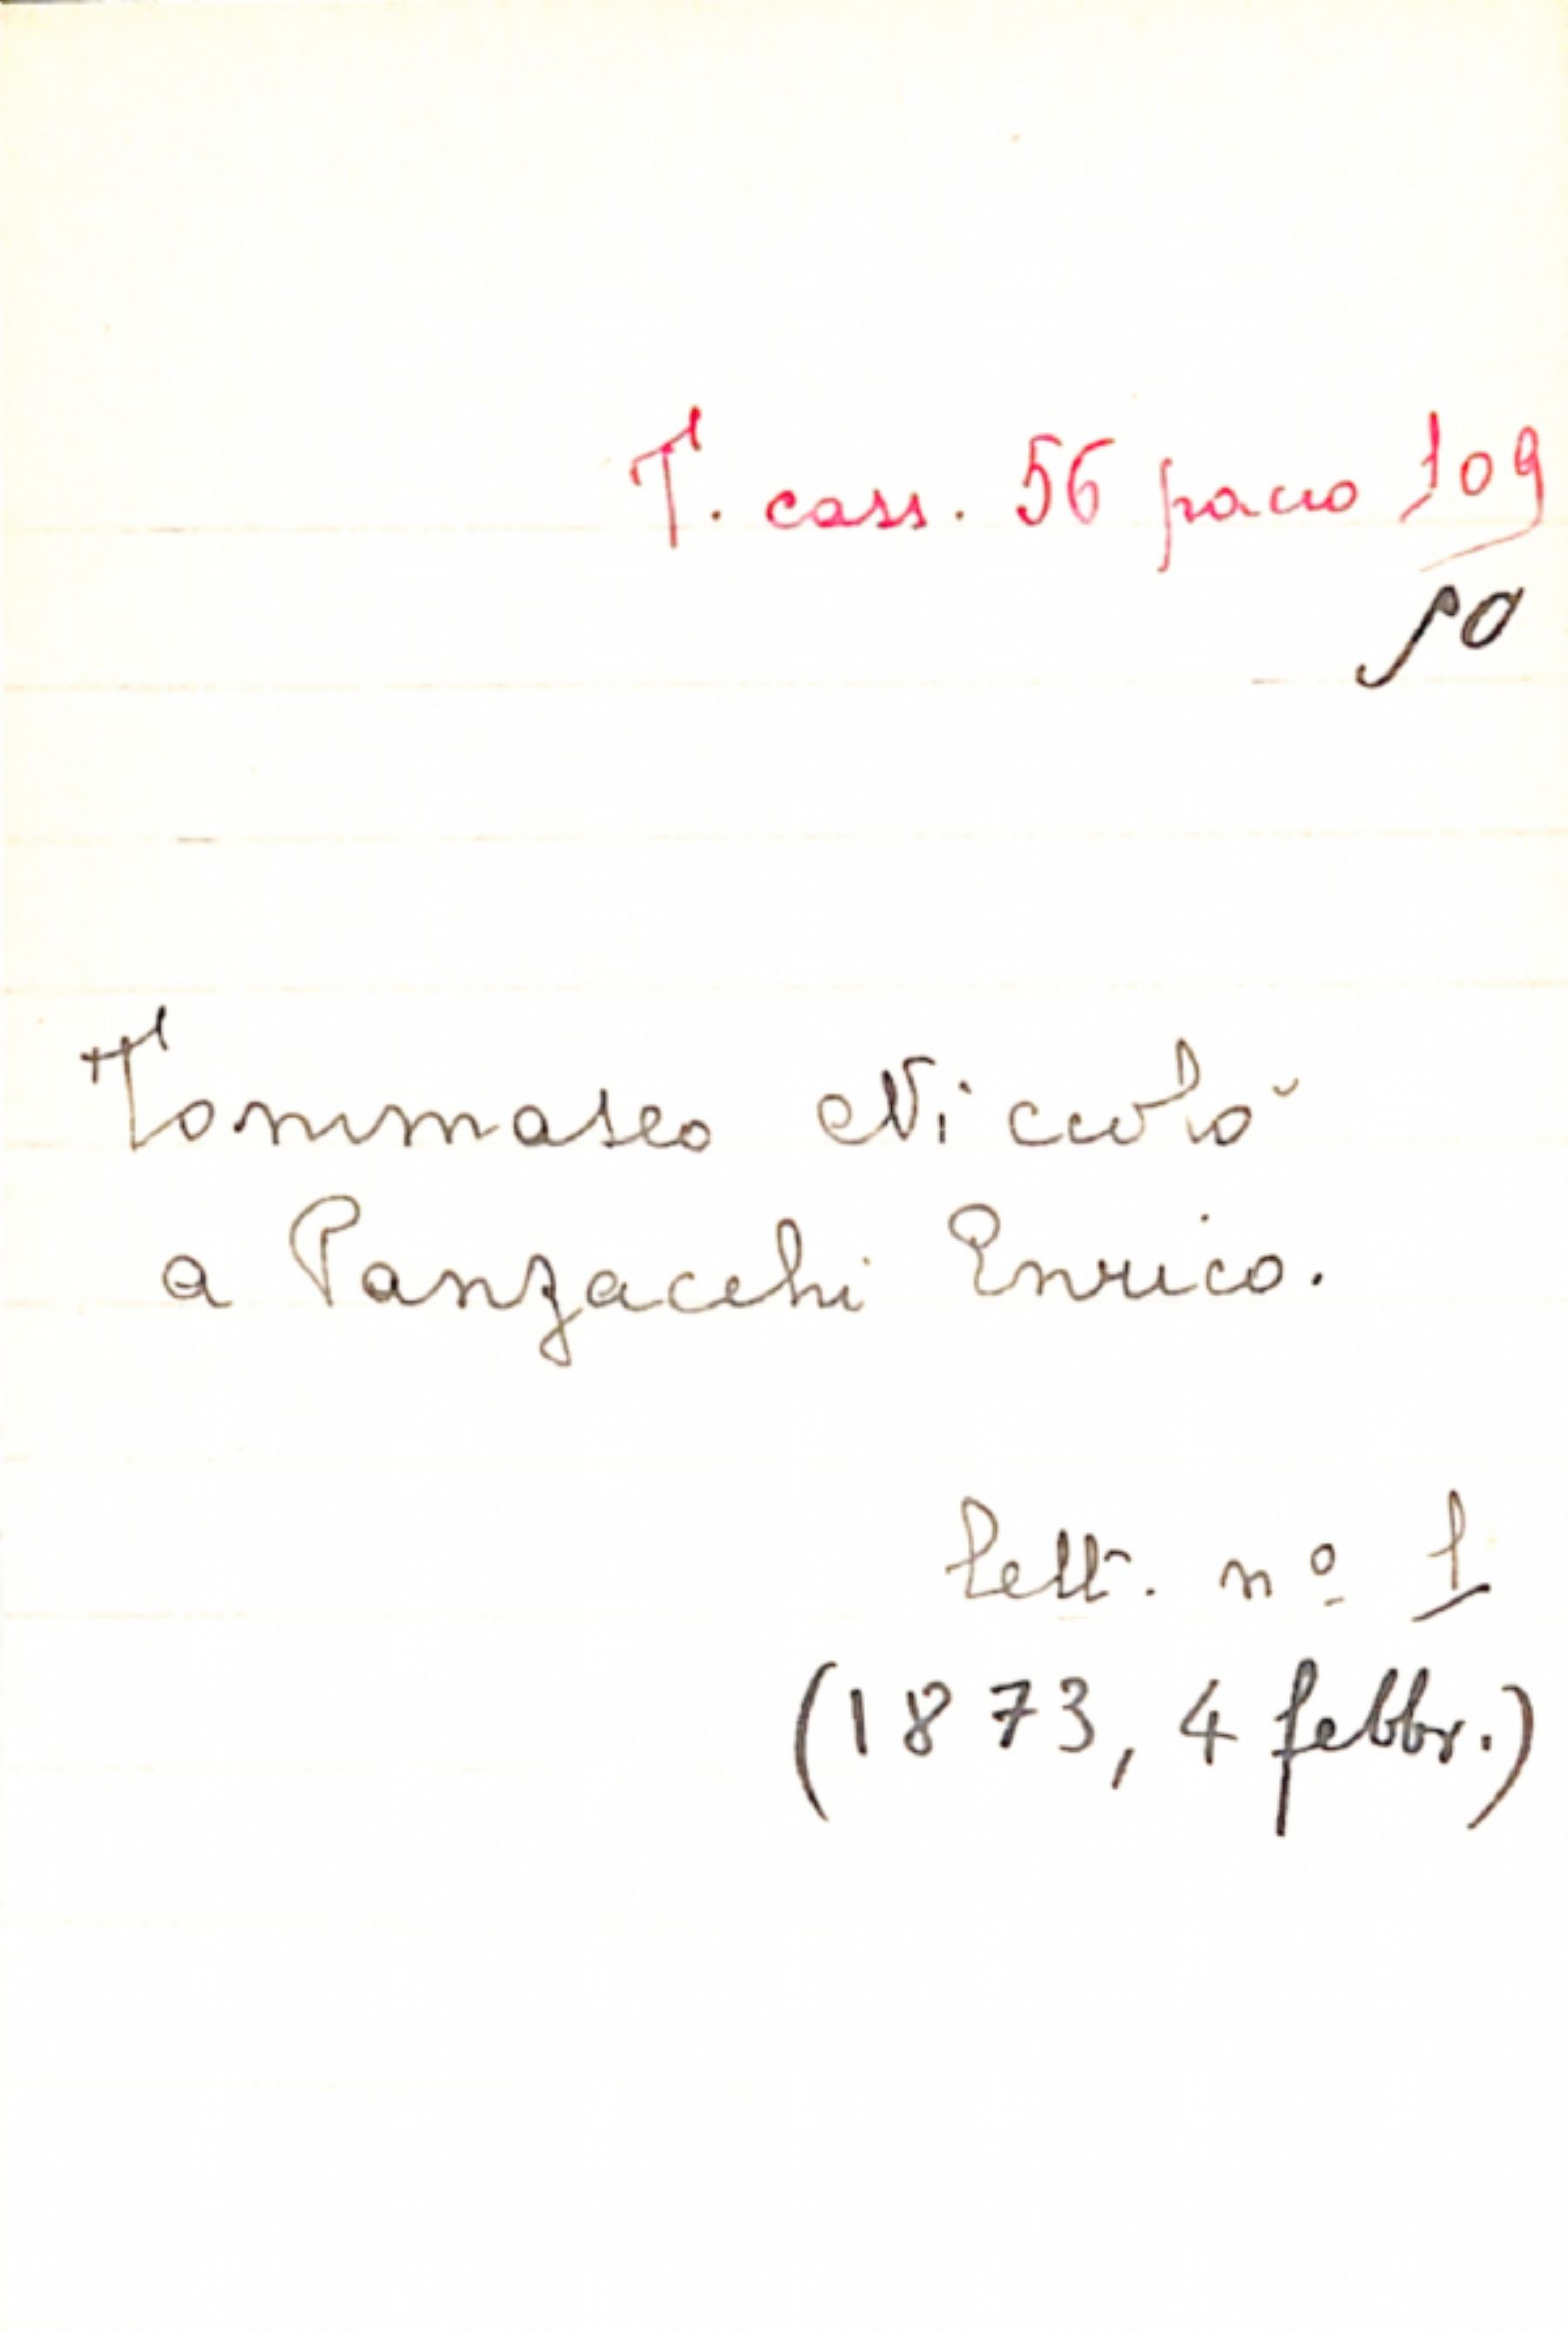 T. cass. 56 pacco 109
10
Tommaseo Niccolò
a Panzacchi Enrico.
lett. nº 1
(1873, 4 febbr.)